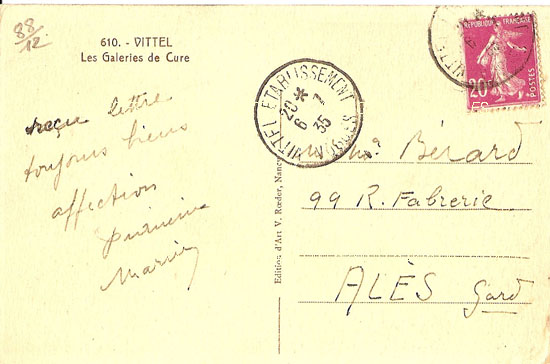 88/12
610. - VITTEL
Les Galeries de Cure
reçu lettre
toujours
affection
VITTEL ETABLISSEMENT
20 *
6 - 7
35
REPUBLIQUE FRANÇAISE
20
POSTES
VITTEL
Bérard
99 R. Fabrerie
ALÈS Gard
Edition d'Art V. Rœder, Nancy